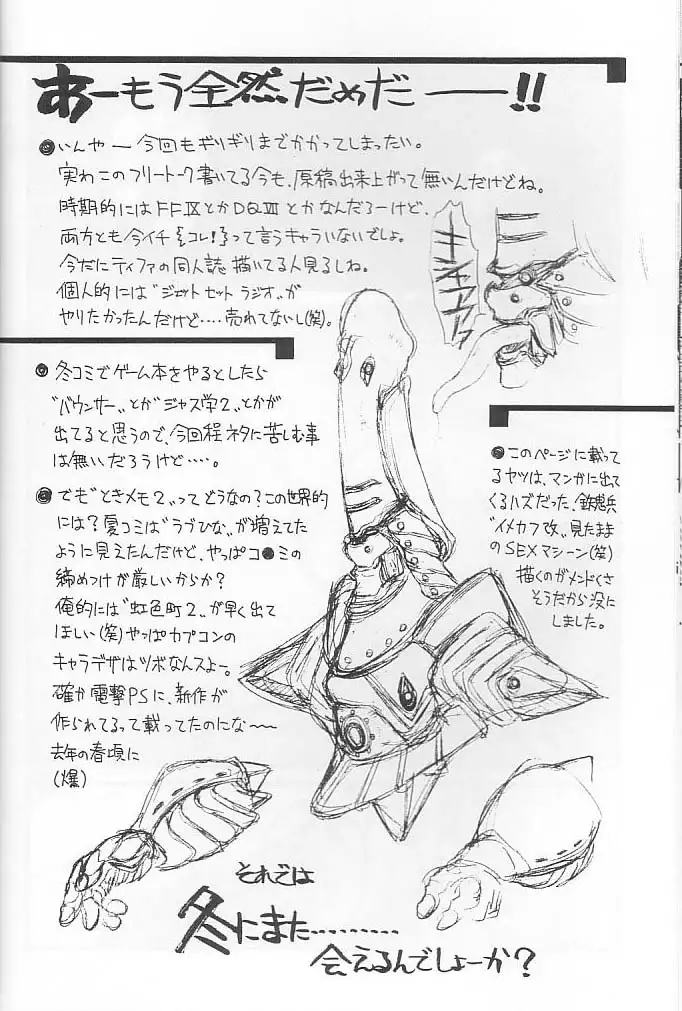 あーもう全然だめだ——!!
●いんやー今回もギリギリまでかかってしまったい。
実わこのフリートーク書いてる今も、原稿出来上がって無いんだけどね。
時期的にはFFⅨとかDQⅦとかなんだろーけど、
両方とも今イチ{コレ!}って言うキャラいないでしょ。
今だにティファの同人誌描いてる人見るしね。
個人的には〝ジェットセットラジオ〟が
やりたかったんだけど‥‥売れてないし(笑)。
●冬コミでゲーム本をやるとしたら
〝バウンサー〟とか〝ジャス学2〟とかが
出てると思うので、今回程ネタに苦しむ事
は無いだろうけど‥‥。
●でも〝ときメモ2〟ってどうなの?この世界的
には?夏コミは〝ラブひな〟が増えてた
ように見えたんだけど、やっぱコ●ミの
締めつけが厳しいからか?
俺的には〝虹色町2〟が早く出て
ほしい(笑)やっぱカプコンの
キャラデザはツボなんスよー。
確か電撃PSに、新作が
作られてるって載ってたのにな〜〜
去年の春頃に
(爆)
●このページに載って
るヤツは、マンガに出て
くるハズだった、鉄騎兵
〝イメカフ改〟見たまま
のSEXマシーン(笑)
描くのがメンドくさ
そうだから没に
しました。
それでは
冬にまた‥‥‥‥
会えるんでしょーか?